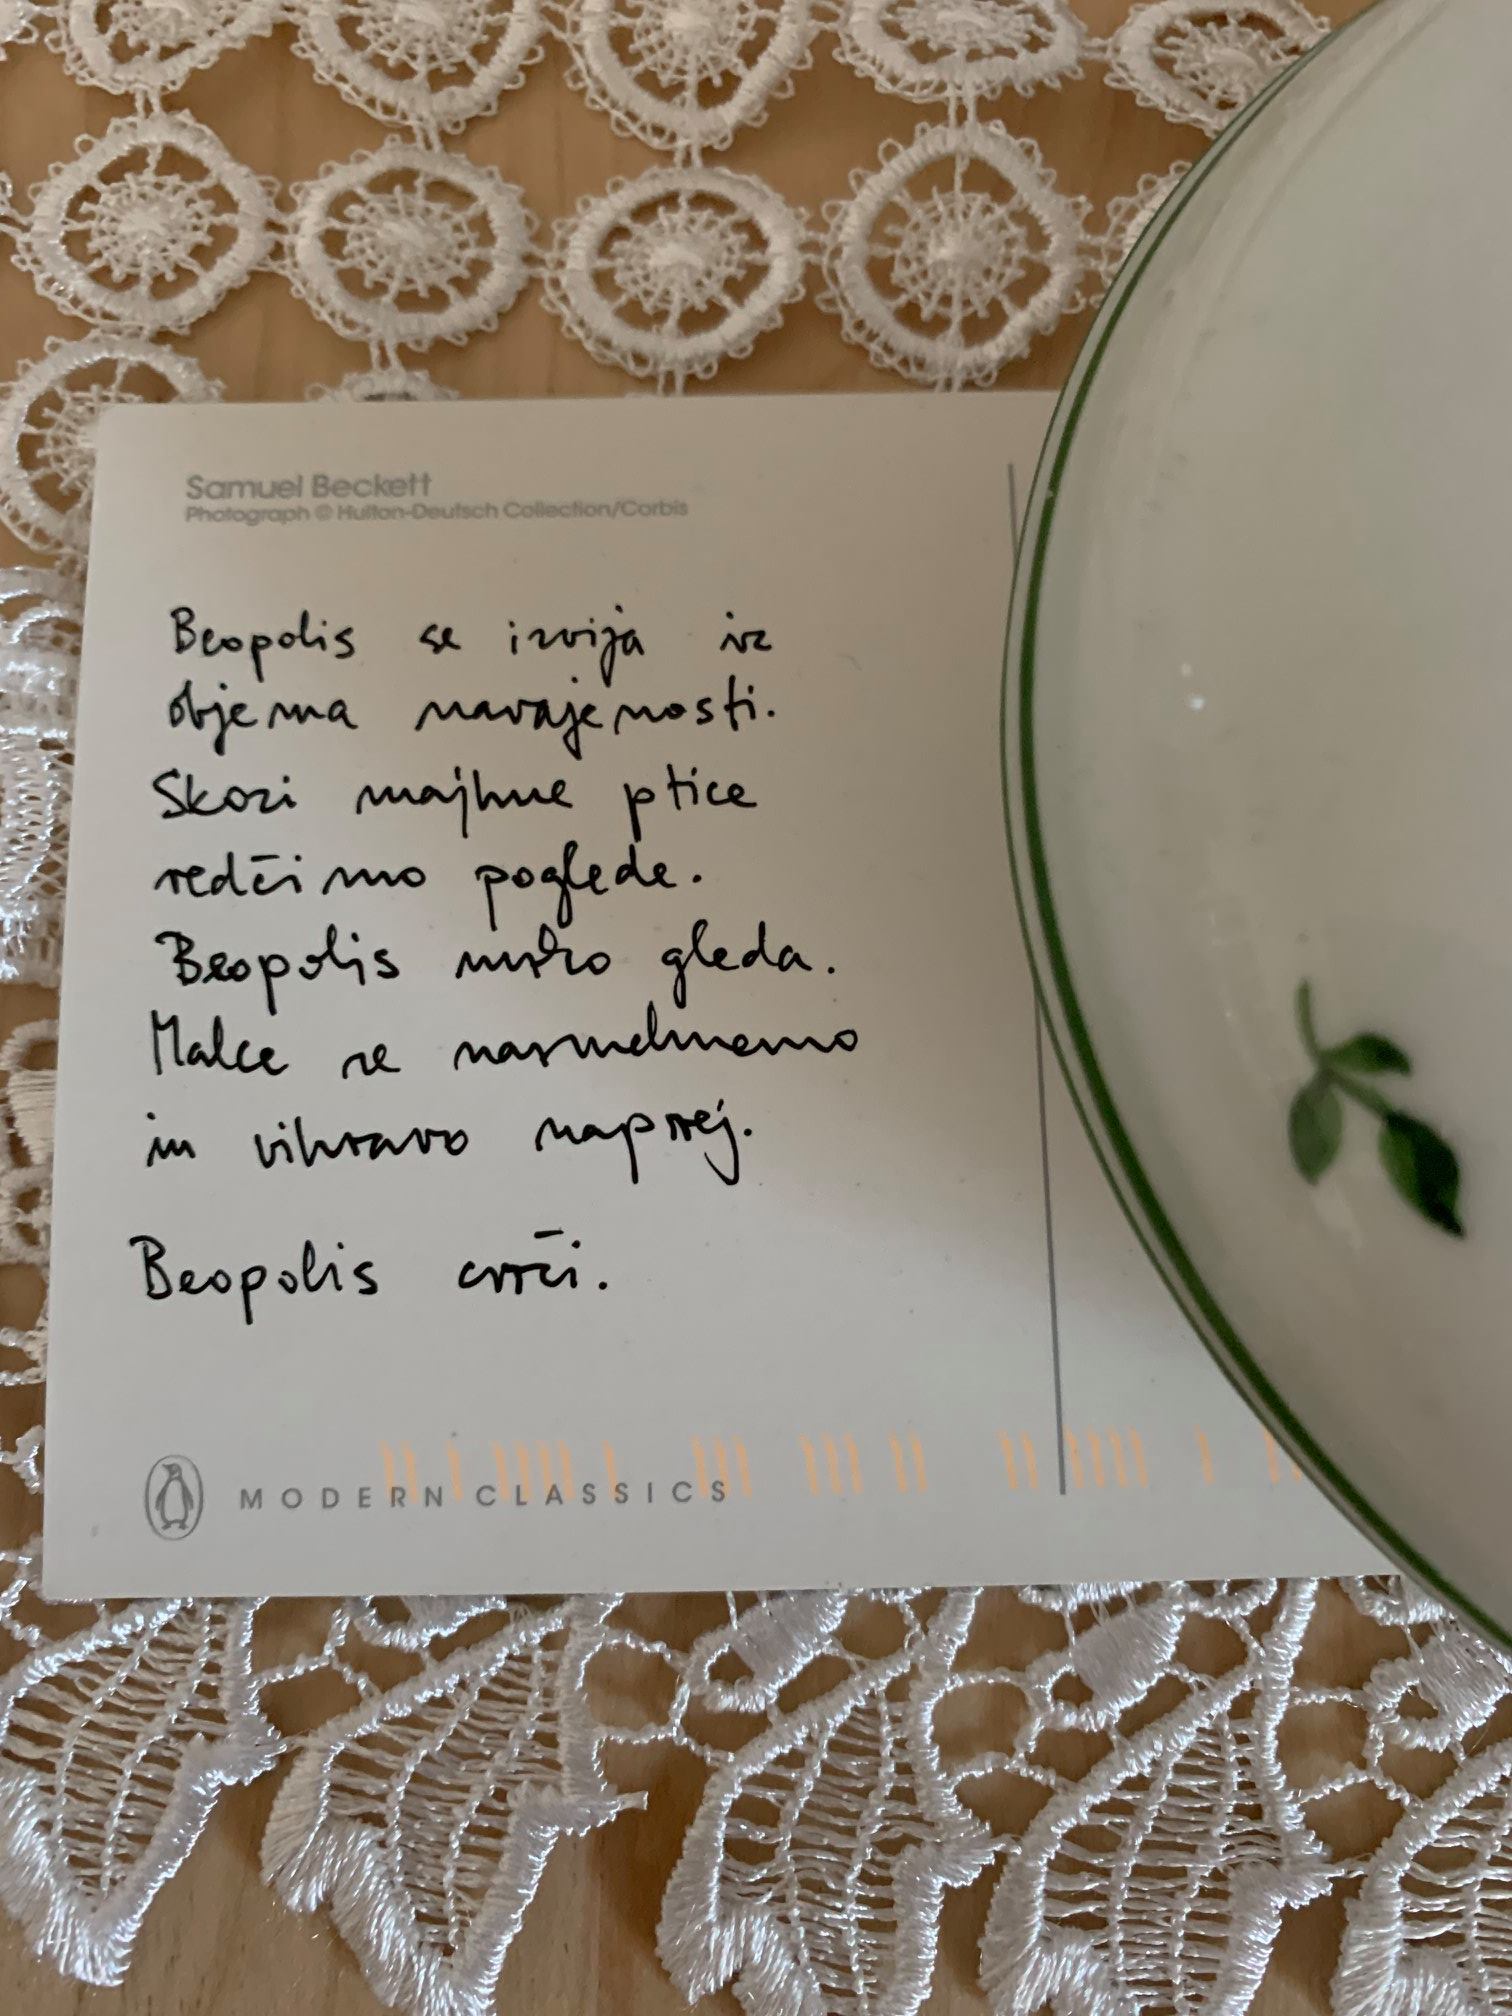 Samuel Beckett
Photograph © Hulton-Deutsch Collection/Corbis
Beopolis se izvija iz
objema navajenosti.
Skozi majhne ptice
redčimo poglede.
Beopolis nizko gleda.
Malce se nasmehnemo
in vihravo naprej.
Beopolis cvrči.
MODERN CLASSICS